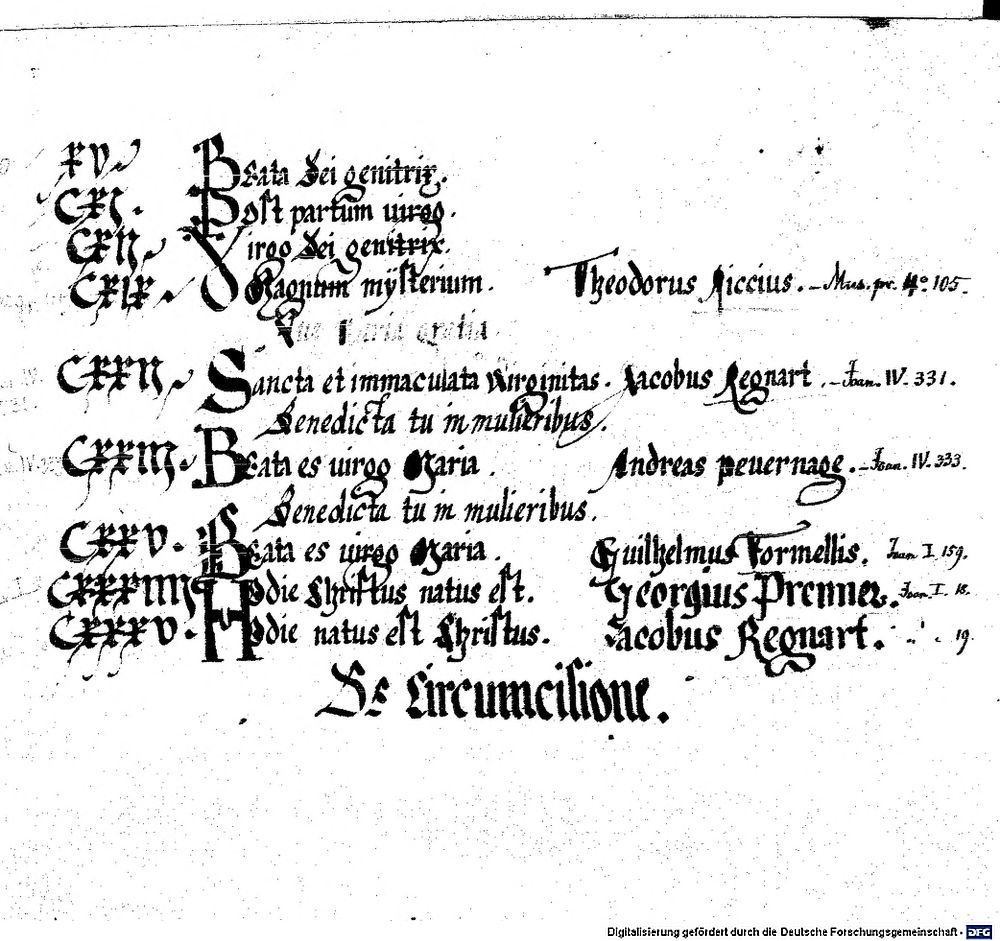 XV Beata Dei genitrix.
CXI. Post partum uirgo.
CXII Virgo Dei genitrix.
CXIX O Magnum mÿsterium. Theodorus Riccius. – Mus. pr. 4º 105.
Aue Maria gratia
CXXII Sancta et immaculata Virginitas. Jacobus Regnart. – Joan. IV. 331.
Benedicta tu in mulieribus.
CXXIII. Beata es uirgo Maria. Andreas peuernage. – Joan. IV. 333.
Benedicta tu in mulieribus.
CXXV. Beata es uirgo Maria. Guilhelmus Formellis. Joan I. 159.
CXXXIIII Hodie Christus natus est. Georgius Prenner. Joan I. 18.
CXXXV. Hodie natus est Christus. Jacobus Regnart. 19.
De Circumcisione.
Digitalisierung gefördert durch die Deutsche Forschungsgemeinschaft - DFG